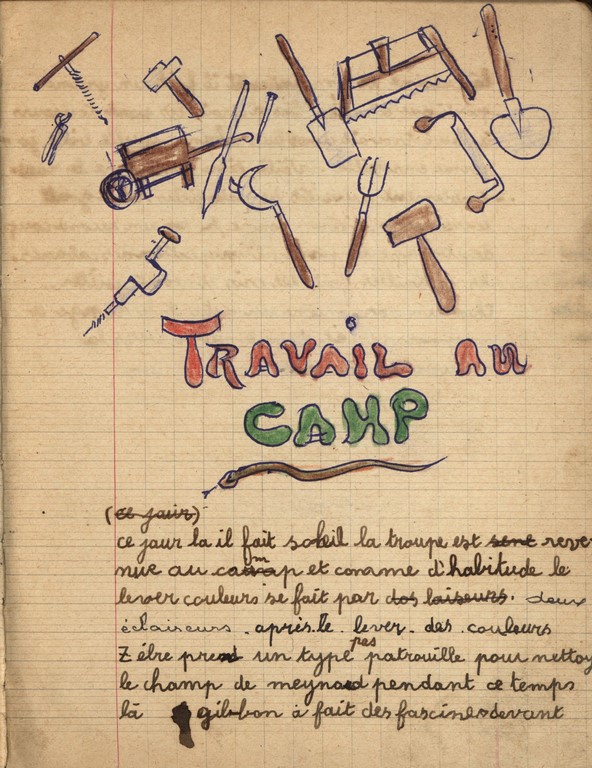 TRAVAIL AU
CAMP
(ce jour)
ce jour la il fait soleil la troupe est sont reve
nue au camp et comme d'habitude le
lever couleurs se fait par dos laiseurs. deux
éclaiseurs. après.le.lever.des.couleurs
Zèbre prend un type pas patrouille pour nettoy
le champ de meynard pendant ce temps
là gibbon à fait des fascines devant